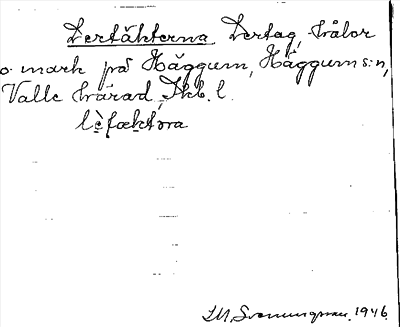 Lertäkterna Lertag, hålor
o. mark på Häggum, Häggums sn,
Valle härad, Skb. l.
S. M. Svenungsson. 1946.